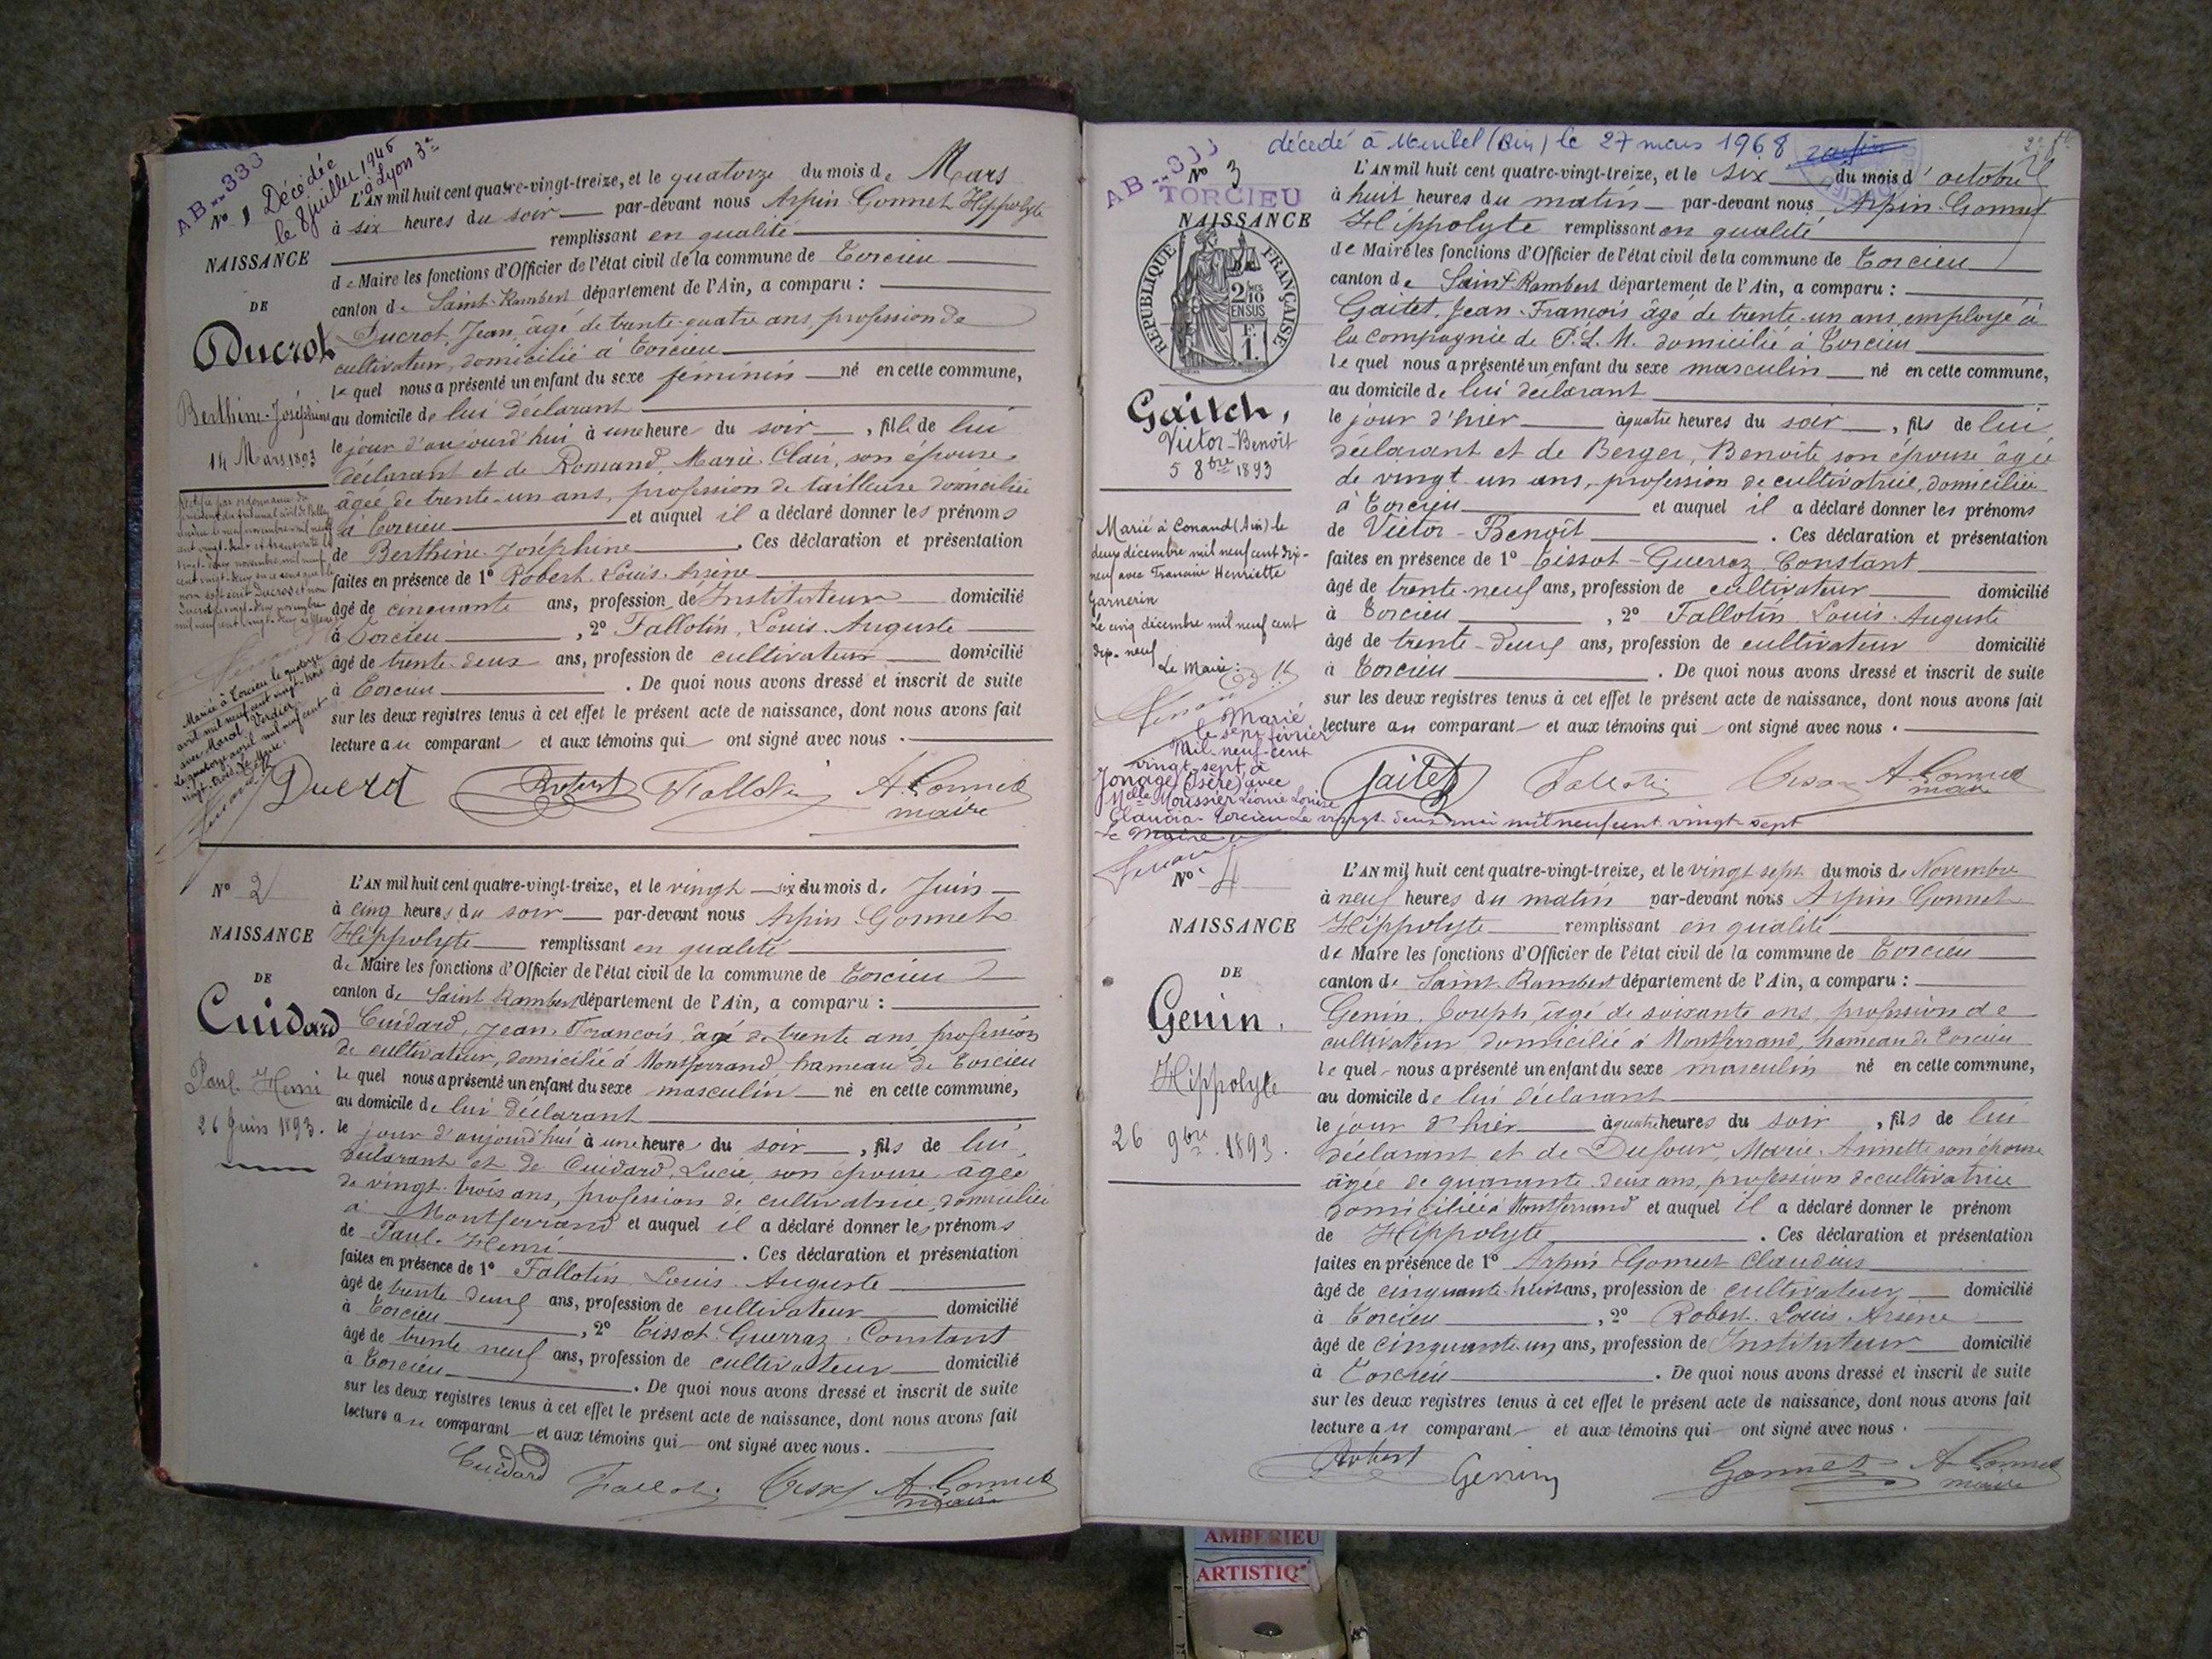 AB--333
Nº 1
Décédée
le 8 juillet 1946
à Lyon 3e
NAISSANCE
DE
Ducrot
Berthine-Joséphine
14 Mars 1893
Rectifié par ordonnance du
président du tribunal civil de Belley
Mariée à Torcieu le quatorze
avril mil neuf cent vingt-trois
avec Marcel Verdier
Le quatorze avril mil neuf cent
vingt-trois. Le Maire.
L'AN mil huit cent quatre-vingt-treize, et le quatorze du mois de Mars
à six heures du soir par-devant nous Arpin-Gonnet Hippolyte
remplissant en qualité
de Maire les fonctions d'Officier de l'état civil de la commune de Torcieu
canton de Saint-Rambert département de l'Ain, a comparu :
Ducrot, Jean, âgé de trente-quatre ans, profession de
cultivateur, domicilié à Torcieu
lequel nous a présenté un enfant du sexe féminin né en cette commune,
au domicile de lui déclarant
le jour d'aujourd'hui à une heure du soir, fille de lui
déclarant et de Romand, Marie-Clair, son épouse,
âgée de trente-un ans, profession de tailleuse domiciliée
à Torcieu et auquel il a déclaré donner les prénoms
de Berthine-Joséphine. Ces déclaration et présentation
faites en présence de 1º Robert Louis-Arsène
âgé de cinquante ans, profession de Instituteur domicilié
à Torcieu, 2º Fallotin, Louis-Auguste
âgé de trente-deux ans, profession de cultivateur domicilié
à Torcieu. De quoi nous avons dressé et inscrit de suite
sur les deux registres tenus à cet effet le présent acte de naissance, dont nous avons fait
lecture au comparant et aux témoins qui ont signé avec nous.
Ducrot Robert Fallotin A. Gonnet
maire
Nº 2
NAISSANCE
DE
Cuidard
Paul-Henri
26 Juin 1893.
L'AN mil huit cent quatre-vingt-treize, et le vingt-six du mois de Juin
à cinq heures du soir par-devant nous Arpin-Gonnet
Hippolyte remplissant en qualité
de Maire les fonctions d'Officier de l'état civil de la commune de Torcieu
canton de Saint-Rambert département de l'Ain, a comparu :
Cuidard, Jean-François, âgé de trente ans, profession
de cultivateur, domicilié à Montferrand, hameau de Torcieu
lequel nous a présenté un enfant du sexe masculin né en cette commune,
au domicile de lui déclarant
le jour d'aujourd'hui à une heure du soir, fils de lui,
déclarant et de Cuidard, Lucie, son épouse âgée
de vingt-trois ans, profession de cultivatrice, domiciliée
à Montferrand et auquel il a déclaré donner les prénoms
de Paul-Henri. Ces déclaration et présentation
faites en présence de 1º Fallotin Louis-Auguste
âgé de trente-deux ans, profession de cultivateur domicilié
à Torcieu, 2º Tissot-Guerraz, Constant
âgé de trente-neuf ans, profession de cultivateur domicilié
à Torcieu. De quoi nous avons dressé et inscrit de suite
sur les deux registres tenus à cet effet le présent acte de naissance, dont nous avons fait
lecture au comparant et aux témoins qui ont signé avec nous.
Cuidard Fallotin A. Gonnet
maire
décédé à Miribel (Ain) le 27 mars 1968
AB--333
Nº 3
TORCIEU
NAISSANCE
RÉPUBLIQUE FRANÇAISE
2/10
EN SUS
1 F.
Gaitet,
Victor-Benoît
5 8bre 1893
Marié à Conand (Ain) le
deux décembre mil neuf cent dix-
neuf avec Francine Henriette
Garnerin
Le cinq décembre mil neuf cent
dix-neuf
Le Maire :
Marié
le sept février
Mil-neuf-cent
vingt-sept à
Jonage (Isère) avec
Melle Moussier Léonie Louise
Claudia. Torcieu Le vingt-deux mai mil neuf cent vingt-sept
Le Maire
L'AN mil huit cent quatre-vingt-treize, et le six du mois d'octobre
à huit heures du matin par-devant nous Arpin-Gonnet
Hippolyte remplissant en qualité
de Maire les fonctions d'Officier de l'état civil de la commune de Torcieu
canton de Saint-Rambert département de l'Ain, a comparu :
Gaitet, Jean-François âgé de trente-un ans, employé à
la compagnie de P.L.M. domicilié à Torcieu
lequel nous a présenté un enfant du sexe masculin né en cette commune,
au domicile de lui déclarant
le jour d'hier à quatre heures du soir, fils de lui
déclarant et de Berger, Benoîte son épouse âgée
de vingt-un ans, profession de cultivatrice, domiciliée
à Torcieu et auquel il a déclaré donner les prénoms
de Victor-Benoît. Ces déclaration et présentation
faites en présence de 1º Tissot-Guerraz Constant
âgé de trente-neuf ans, profession de cultivateur domicilié
à Torcieu, 2º Fallotin Louis-Auguste
âgé de trente-deux ans, profession de cultivateur domicilié
à Torcieu. De quoi nous avons dressé et inscrit de suite
sur les deux registres tenus à cet effet le présent acte de naissance, dont nous avons fait
lecture au comparant et aux témoins qui ont signé avec nous.
Gaitet Fallotin A. Gonnet
maire
Nº 4
NAISSANCE
DE
Genin.
Hippolyte
26 9bre. 1893.
L'AN mil huit cent quatre-vingt-treize, et le vingt-sept du mois de Novembre
à neuf heures du matin par-devant nous Arpin-Gonnet
Hippolyte remplissant en qualité
de Maire les fonctions d'Officier de l'état civil de la commune de Torcieu
canton de Saint-Rambert département de l'Ain, a comparu :
Genin, Joseph, âgé de soixante ans, profession de
cultivateur domicilié à Montferrand, hameau de Torcieu
lequel nous a présenté un enfant du sexe masculin né en cette commune,
au domicile de lui déclarant
le jour d'hier à quatre heures du soir, fils de lui
déclarant et de Dufour, Marie-Annette son épouse
âgée de quarante-deux ans, profession de cultivatrice
domiciliée à Montferrand et auquel il a déclaré donner le prénom
de Hippolyte. Ces déclaration et présentation
faites en présence de 1º Arpin-Gonnet Claudius
âgé de cinquante-huit ans, profession de cultivateur domicilié
à Torcieu, 2º Robert Louis-Arsène
âgé de cinquante-un ans, profession de Instituteur domicilié
à Torcieu. De quoi nous avons dressé et inscrit de suite
sur les deux registres tenus à cet effet le présent acte de naissance, dont nous avons fait
lecture au comparant et aux témoins qui ont signé avec nous.
Robert Genin Gonnet A. Gonnet
maire
AMBERIEU
ARTISTIQ